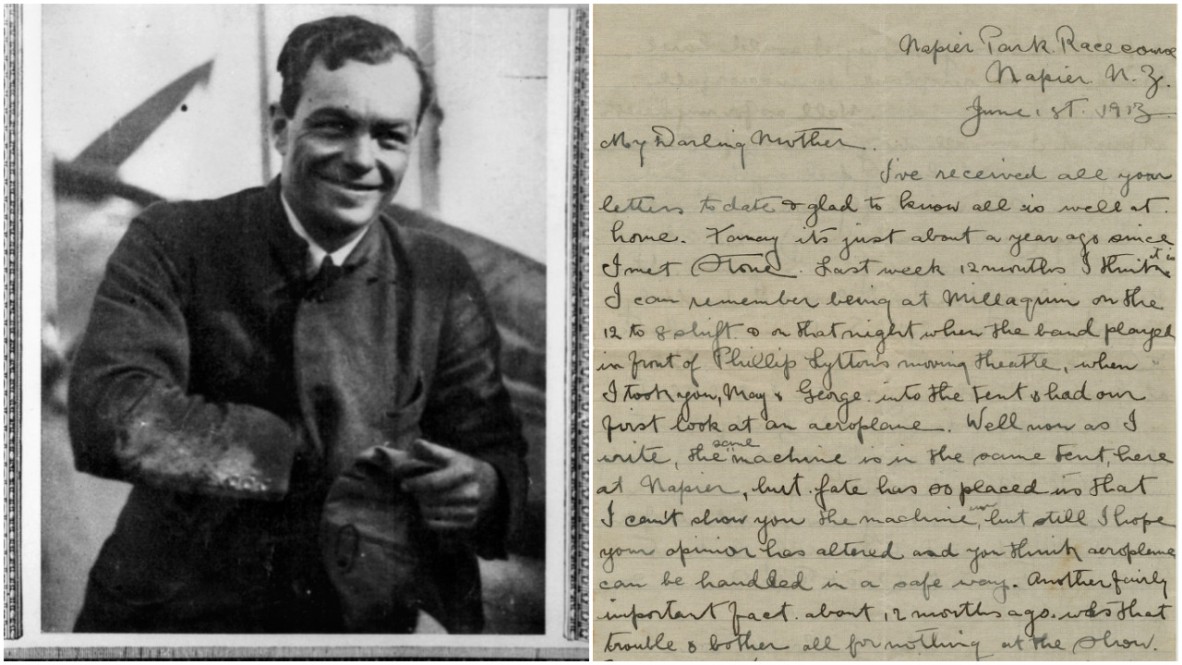 Napier Park Racecourse
Napier N.Z.
June 1st. 1913.
My Darling Mother.
I've received all your
letters to date & glad to know all is well at
home. Fancy its just about a year ago since
I met Stone. Last week 12 months I think it is
I can remember being at Millaquin on the
12 to 8 shift & on that night when the band played
in front of Phillip Lytton's moving theatre, when
I took you, May & George into the tent & had our
first look at an aeroplane. Well now as I
write, the same machine is in the same tent, here
at Napier, but fate has so placed us that
I can't show you the machine, but still I hope
your opinion has altered and you think aeroplane
can be handled in a safe way. Another fairly
important fact about 12 months ago was that
trouble & bother all for nothing at the show.